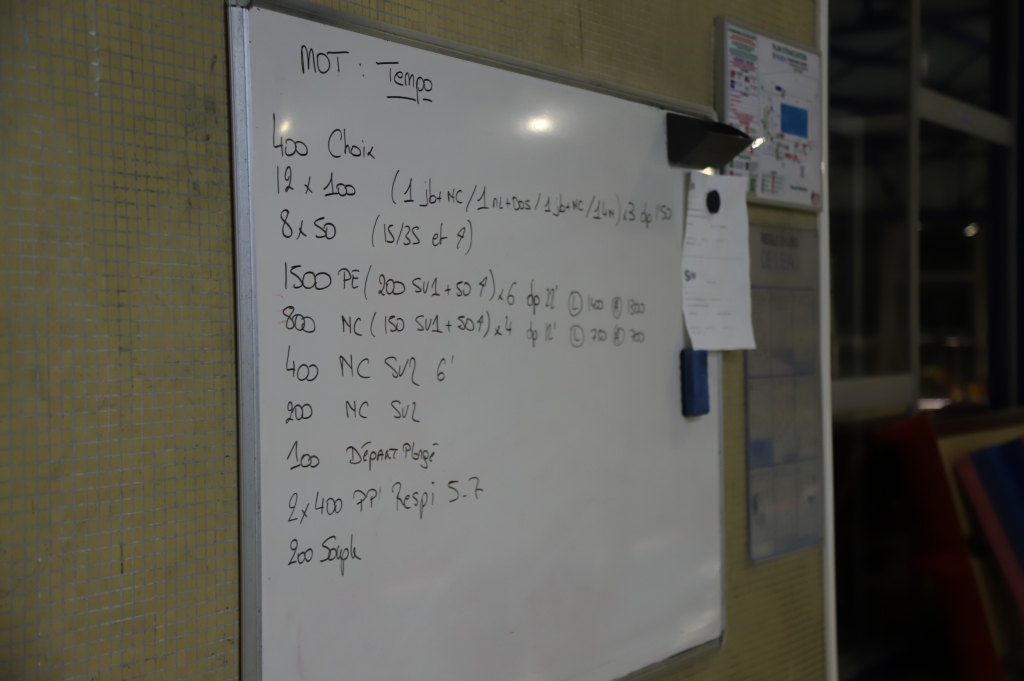 MOT : Tempo
400 Choix
12 x 100 (1 jb+NC/1 nL+Dos/1 jb+NC/14N)x3 dp 1'50
8 x 50 (15/35 et 4)
1500 PE (200 SV1+50 4)x6 dp 22' Ⓛ 1400 Ⓡ 1300
800 NC (150 SV1+50 4)x4 dp 12' Ⓛ 750 Ⓡ 700
400 NC SV2 6'
200 NC SV2
100 Départ Plongé
2x400 PP' Respi 5-7
200 Souple
PLAN D'EVACUATION